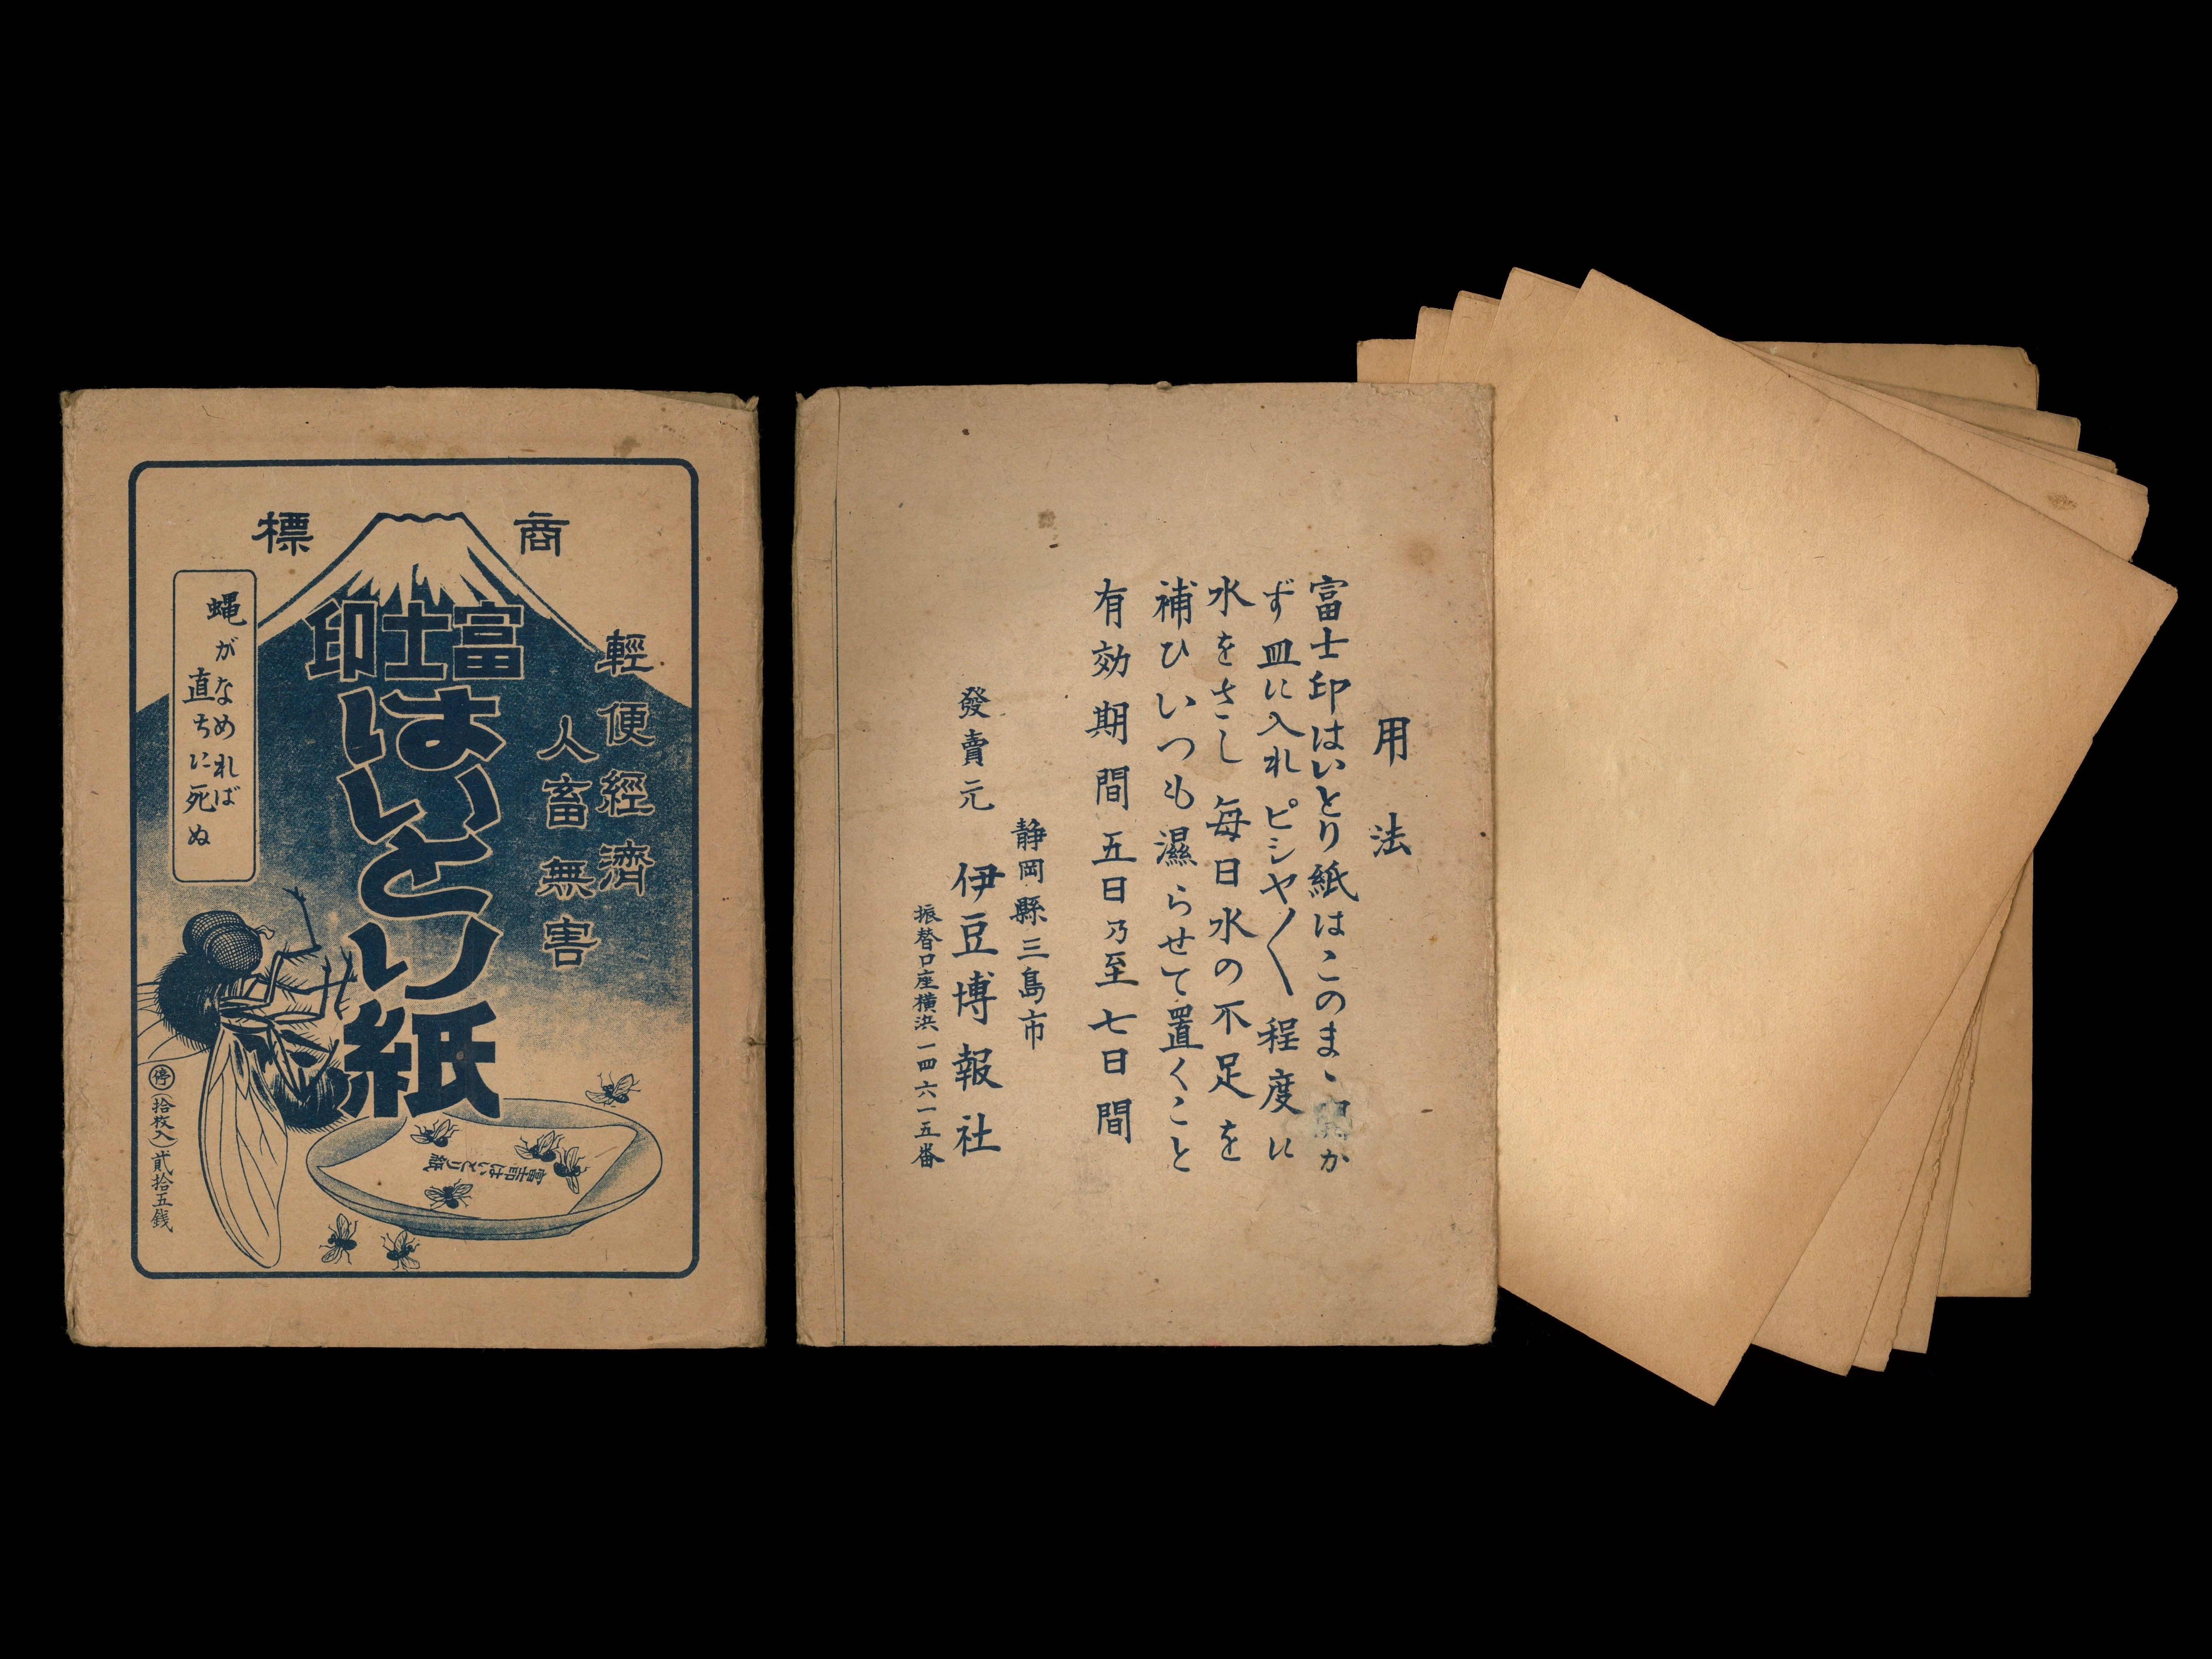 商標
富士印
はいとり紙
輕便經濟
人畜無害
蝿がなめれば
直ちに死ぬ
停(拾枚入)貳拾五銭
富士印はいとり紙
用法
富士印はいとり紙はこのまゝ開か
ず皿に入れピシヤ〳〵程度に
水をさし毎日水の不足を
補ひいつも濕らせて置くこと
有効期間五日乃至七日間
靜岡縣三島市
發賣元 伊豆博報社
振替口座橫浜一四六一五番